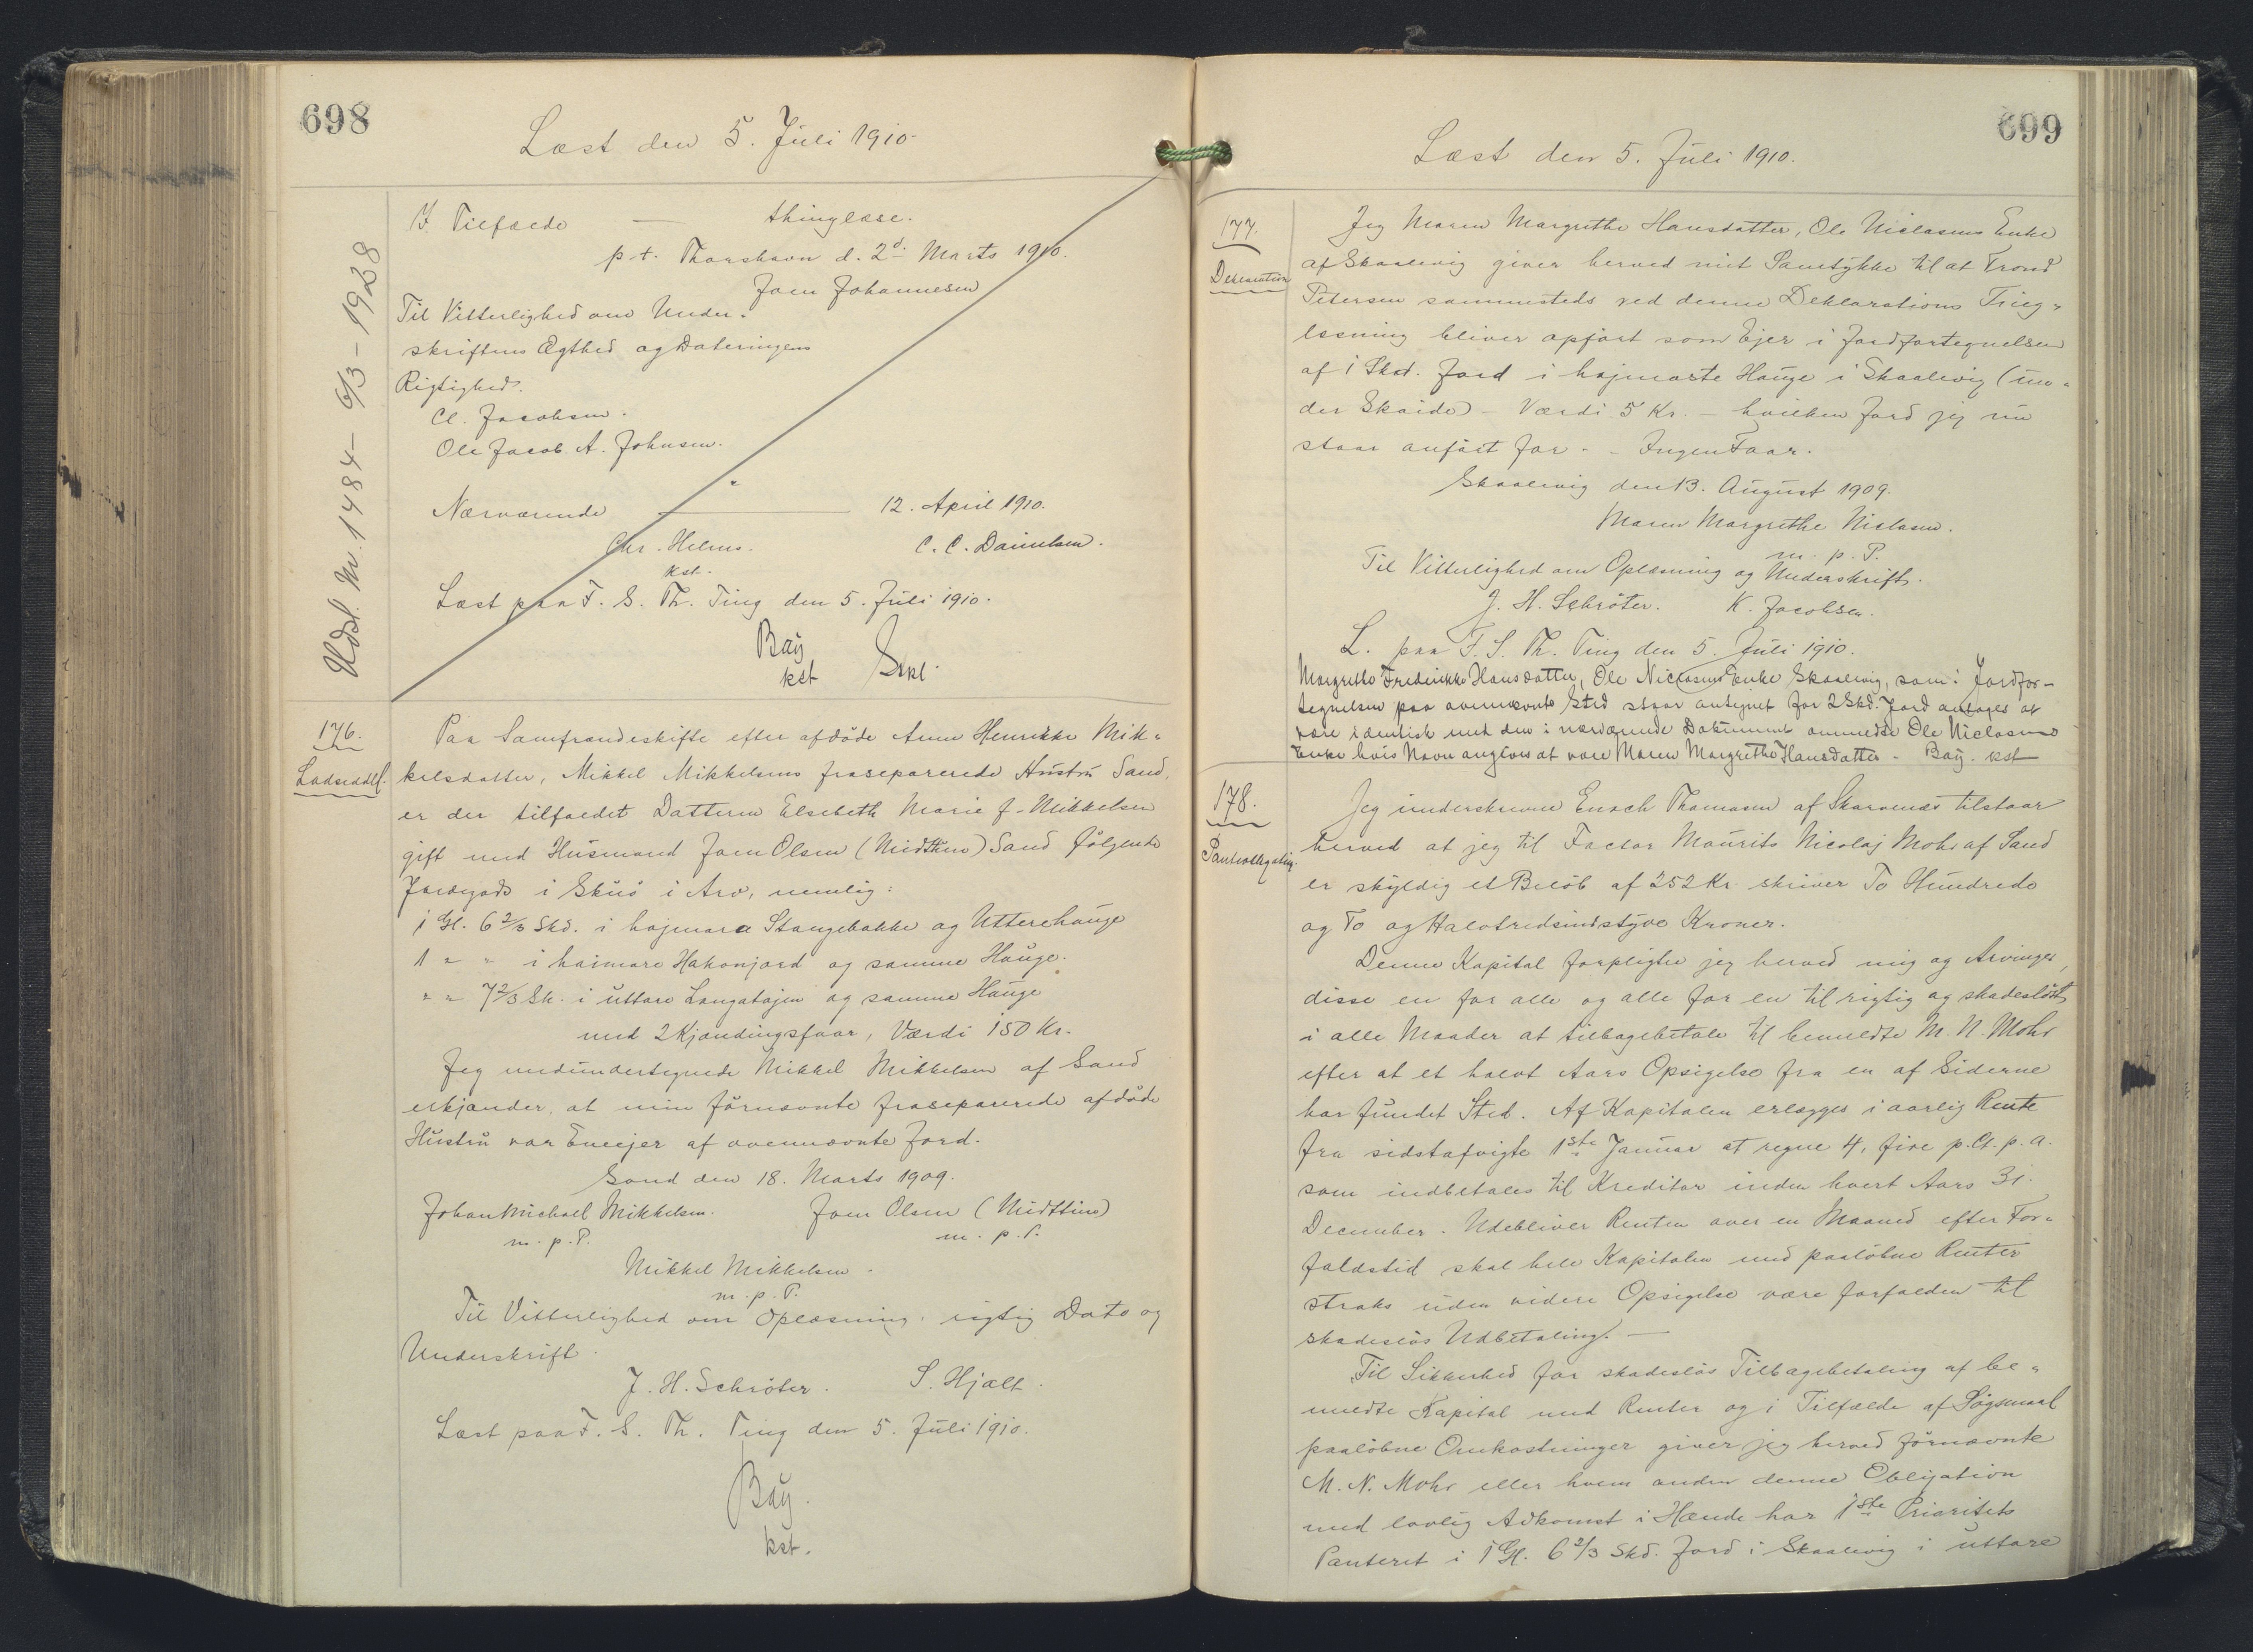 698
Læst den 5. Juli 1910.
Udsl. Nr. 1484 - 6/3 - 1928
I Tilfælde — thinglæse.
p.t. Thorshavn d. 2d. Marts 1910.
Joen Johannesen
Til Vitterlighed om Under-
skriftens Ægthed og Dateringens
Rigtighed.
Cl. Jacobsen.
Ole Jacob A. Johnsen.
Nærværende — 12. April 1910.
Chr. Helms. C. C. Danielsen.
kst.
Læst paa F. S. Th. Ting den 5. Juli 1910.
Bay
kst
176.
Paa Samfrændeskifte efter afdöde Anne Henrikke Mik-
kelsdatter, Mikkel Mikkelsens fraseparerede Hustru Sand,
er der tilfaldet Datteren Elsebeth Marie f. Mikkelsen
gift med Husmand Joen Olsen (Midttun) Sand følgende
Jordegods i Skuö i Arv, nemlig:
1 Gl. 6 2/3 Skd. i hojmara Stangebakke og Utterehauge
1 " " i haimare Hakonjord og samme Hauge.
" " 7 2/3 Sk. i uttare Langatøjen og samme Hauge
med 2 Kjændingsfaar, Værdi 150 Kr.
Jeg medundertegnede Mikkel Mikkelsen af Sand
erkjender, at min förnævnte fraseparerede afdöde
Hustru var Eneejer af ovennævnte Jord.
Sand den 18. Marts 1909.
Johan Michael Mikkelsen. Joen Olsen (Midttun)
m. p. P. m. p. P.
Mikkel Mikkelsen.
m. p. P.
Til Vitterlighed om Oplæsning, rigtig Dato og
Underskrift.
J. H. Schröter. S. Hjalt.
Læst paa F. S. Th. Ting den 5. Juli 1910.
Bay.
kst.
699
Læst den 5. Juli 1910.
177.
Deklaration
Jeg Maren Margrethe Hansdatter, Ole Niclasens Enke
af Skaalevig giver herved mit Samtykke til at Trond
Petersen sammesteds ved denne Deklarations Ting-
læsning bliver opført som Ejer i Jordfortegnelsen
af 1 Skd. Jord i hojmarte Hauge i Skaalevig (un-
der Skaide) - Værdi 5 Kr. - hvilken Jord jeg nu
staar anfört for. - Ingen Faar.
Skaalevig den 13. August 1909.
Maren Margrethe Niclasen.
m. p. P.
Til Vitterlighed om Oplæsning og Underskrift.
J. H. Schröter. K. Jacobsen.
L. paa F. S. Th. Ting den 5. Juli 1910.
Margrethe Frederikke Hansdatter, Ole Niclasens Enke Skaalevig, som i Jordfor-
tegnelsen paa ovennævnte Sted staar antegnet for 2 Skd. Jord antages at
være identisk med den i nærværende Dokument ommeldte Ole Niclasens
Enke hvis Navn angives at være Maren Margrethe Hansdatter. - Bay. kst
178.
Pantobligation.
Jeg underskrevne Enoch Thomasen af Skarvenæs tilstaar
herved at jeg til Factor Maurits Nicolaj Mohr af Sand
er skyldig et Belöb af 252 Kr. skriver To Hundrede
og To og Halvtredsindstyve Kroner.
Denne Kapital forpligter jeg herved mig og Arvinger,
disse en for alle og alle for en til rigtig og skadeslöst
i alle Maader at tilbagebetale til bemeldte M. N. Mohr
efter at et halvt Aars Opsigelse fra en af Siderne
har fundet Sted. Af Kapitalen erlægges i aarlig Rente
fra sidstafvigte 1ste Januar at regne 4, fire p. Ct. p. a.
som indbetales til Kreditor inden hvert Aars 31.
December. Udebliver Renten over en Maaned efter For-
faldstid skal hele Kapitalen med paaløbne Renter
straks uden videre Opsigelse være forfalden til
skadeslös Udbetaling. —
Til Sikkerhed for skadeslös Tilbagebetaling af be-
meldte Kapital med Renter og i Tilfælde af Søgsmaal
paalöbne Omkostninger giver jeg herved förnævnte
M. N. Mohr eller hvem anden denne Obligation
med lovlig Adkomst i Hænde har 1ste Prioritets
Panteret i 1 Gl. 6 2/3 Skd. Jord i Skaalevig i uttare